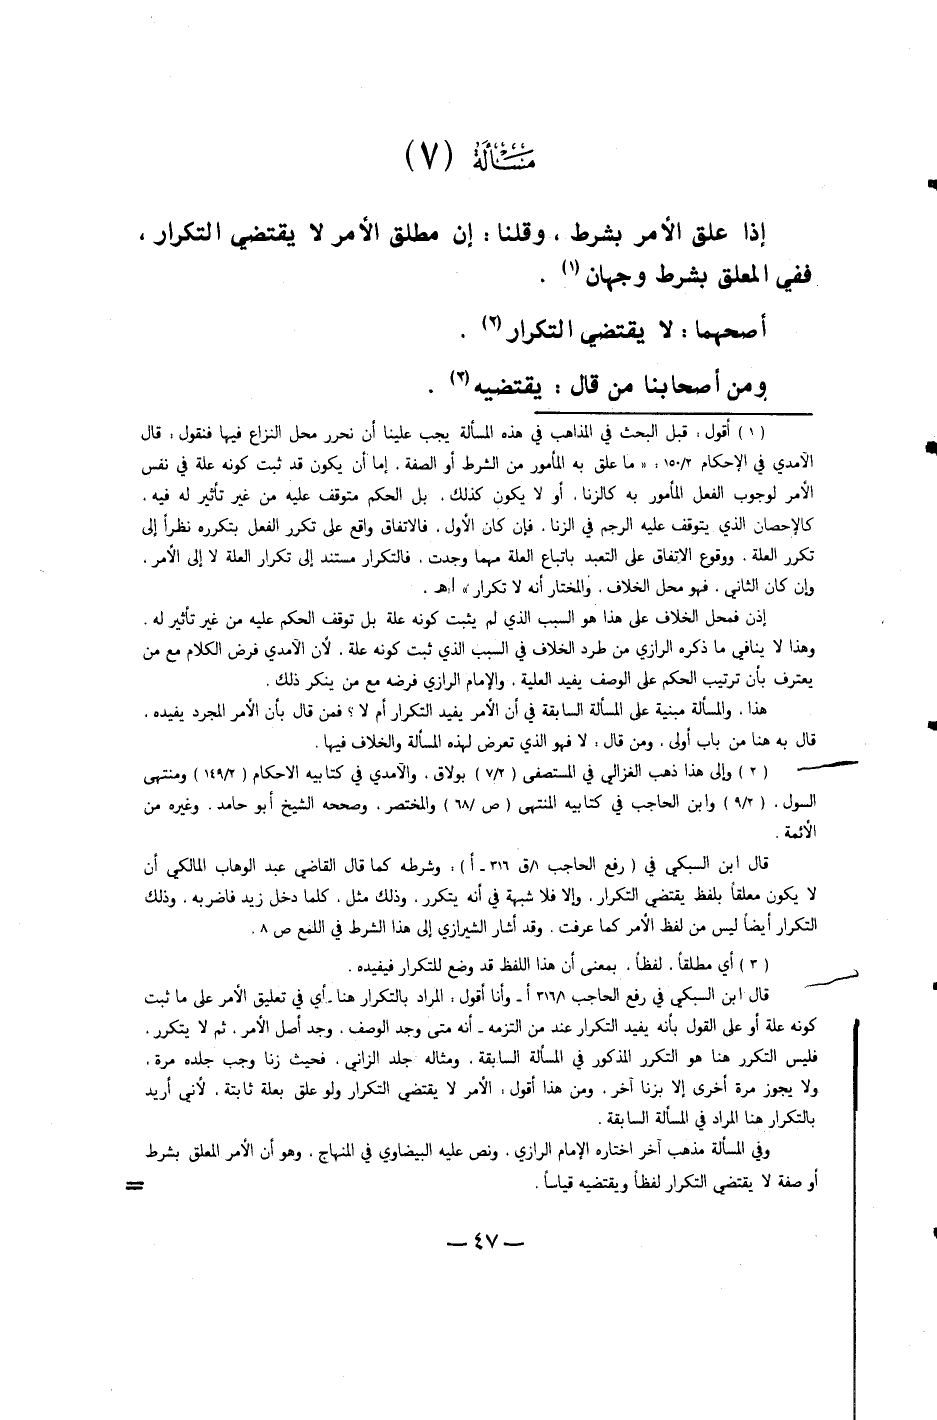 مسألة (٧)
إذا علق الأمر بشرط ، وقلنا : إن مطلق الأمر لا يقتضي التكرار ،
ففي المعلق بشرط وجهان (١) .
أصحهما : لا يقتضي التكرار (٢) .
ومن أصحابنا من قال : يقتضيه (٣) .
(١) أقول : قبل البحث في المذاهب في هذه المسألة يجب علينا أن نحرر محل النزاع فيها فنقول : قال
الآمدي في الإحكام ١٥٠/٢ : « ما علق به المأمور من الشرط أو الصفة ، إما أن يكون قد ثبت كونه علة في نفس
الأمر لوجوب الفعل المأمور به كالزنا ، أو لا يكون كذلك ، بل الحكم متوقف عليه من غير تأثير له فيه ،
كالإحصان الذي يتوقف عليه الرجم في الزنا ، فإن كان الأول ، فالاتفاق واقع على تكرر الفعل بتكرره نظراً إلى
تكرر العلة ، ووقوع الاتفاق على التعبد باتباع العلة مهما وجدت ، فالتكرار مستند إلى تكرار العلة لا إلى الأمر ،
وإن كان الثاني ، فهو محل الخلاف ، والمختار أنه لا تكرار » أ.هـ .
إذن فمحل الخلاف على هذا هو السبب الذي لم يثبت كونه علة بل توقف الحكم عليه من غير تأثير له .
وهذا لا ينافي ما ذكره الرازي من طرد الخلاف في السبب الذي ثبت كونه علة ، لأن الآمدي فرض الكلام مع من
يعترف بأن ترتيب الحكم على الوصف يفيد العلية ، والإمام الرازي فرضه مع من ينكر ذلك .
هذا ، والمسألة مبنية على المسألة السابقة في أن الأمر يفيد التكرار أم لا ؟ فمن قال بأن الأمر المجرد يفيده ،
قال به هنا من باب أولى ، ومن قال : لا فهو الذي تعرض لهذه المسألة والخلاف فيها .
(٢) وإلى هذا ذهب الغزالي في المستصفى (٧/٢) بولاق ، والآمدي في كتابيه الاحكام (١٤٩/٢) ومنتهى
السول ، (٩/٢) وابن الحاجب في كتابيه المنتهى (ص /٦٨) والمختصر ، وصححه الشيخ أبو حامد ، وغيره من
الأئمة .
قال ابن السبكي في (رفع الحاجب ١/ق ٣١٦ ـ أ) : وشرطه كما قال القاضي عبد الوهاب المالكي أن
لا يكون معلقاً بلفظ يقتضي التكرار ، وإلا فلا شبهة في أنه يتكرر ، وذلك مثل ، كلما دخل زيد فاضربه ، وذلك
التكرار أيضاً ليس من لفظ الأمر كما عرفت ، وقد أشار الشيرازي إلى هذا الشرط في اللمع ص ٨ .
(٣) أي مطلقاً ، لفظاً ، بمعنى أن هذا اللفظ قد وضع للتكرار فيفيده .
قال ابن السبكي في رفع الحاجب ٣١٦/١ أ ـ وأنا أقول : المراد بالتكرار هنا ـ أي في تعليق الأمر على ما ثبت
كونه علة أو على القول بأنه يفيد التكرار عند من التزمه ـ أنه متى وجد الوصف ، وجد أصل الأمر ، ثم لا يتكرر ،
فليس التكرر هنا هو التكرر المذكور في المسألة السابقة ، ومثاله جلد الزاني ، فحيث زنا وجب جلده مرة ،
ولا يجوز مرة أخرى إلا بزنا آخر ، ومن هذا أقول : الأمر لا يقتضي التكرار ولو علق بعلة ثابتة ، لأني أريد
بالتكرار هنا المراد في المسألة السابقة .
وفي المسألة مذهب آخر اختاره الإمام الرازي ، ونص عليه البيضاوي في المنهاج ، وهو أن الأمر المعلق بشرط
أو صفة لا يقتضي التكرار لفظاً ويقتضيه قياساً .
=
— ٤٧ —